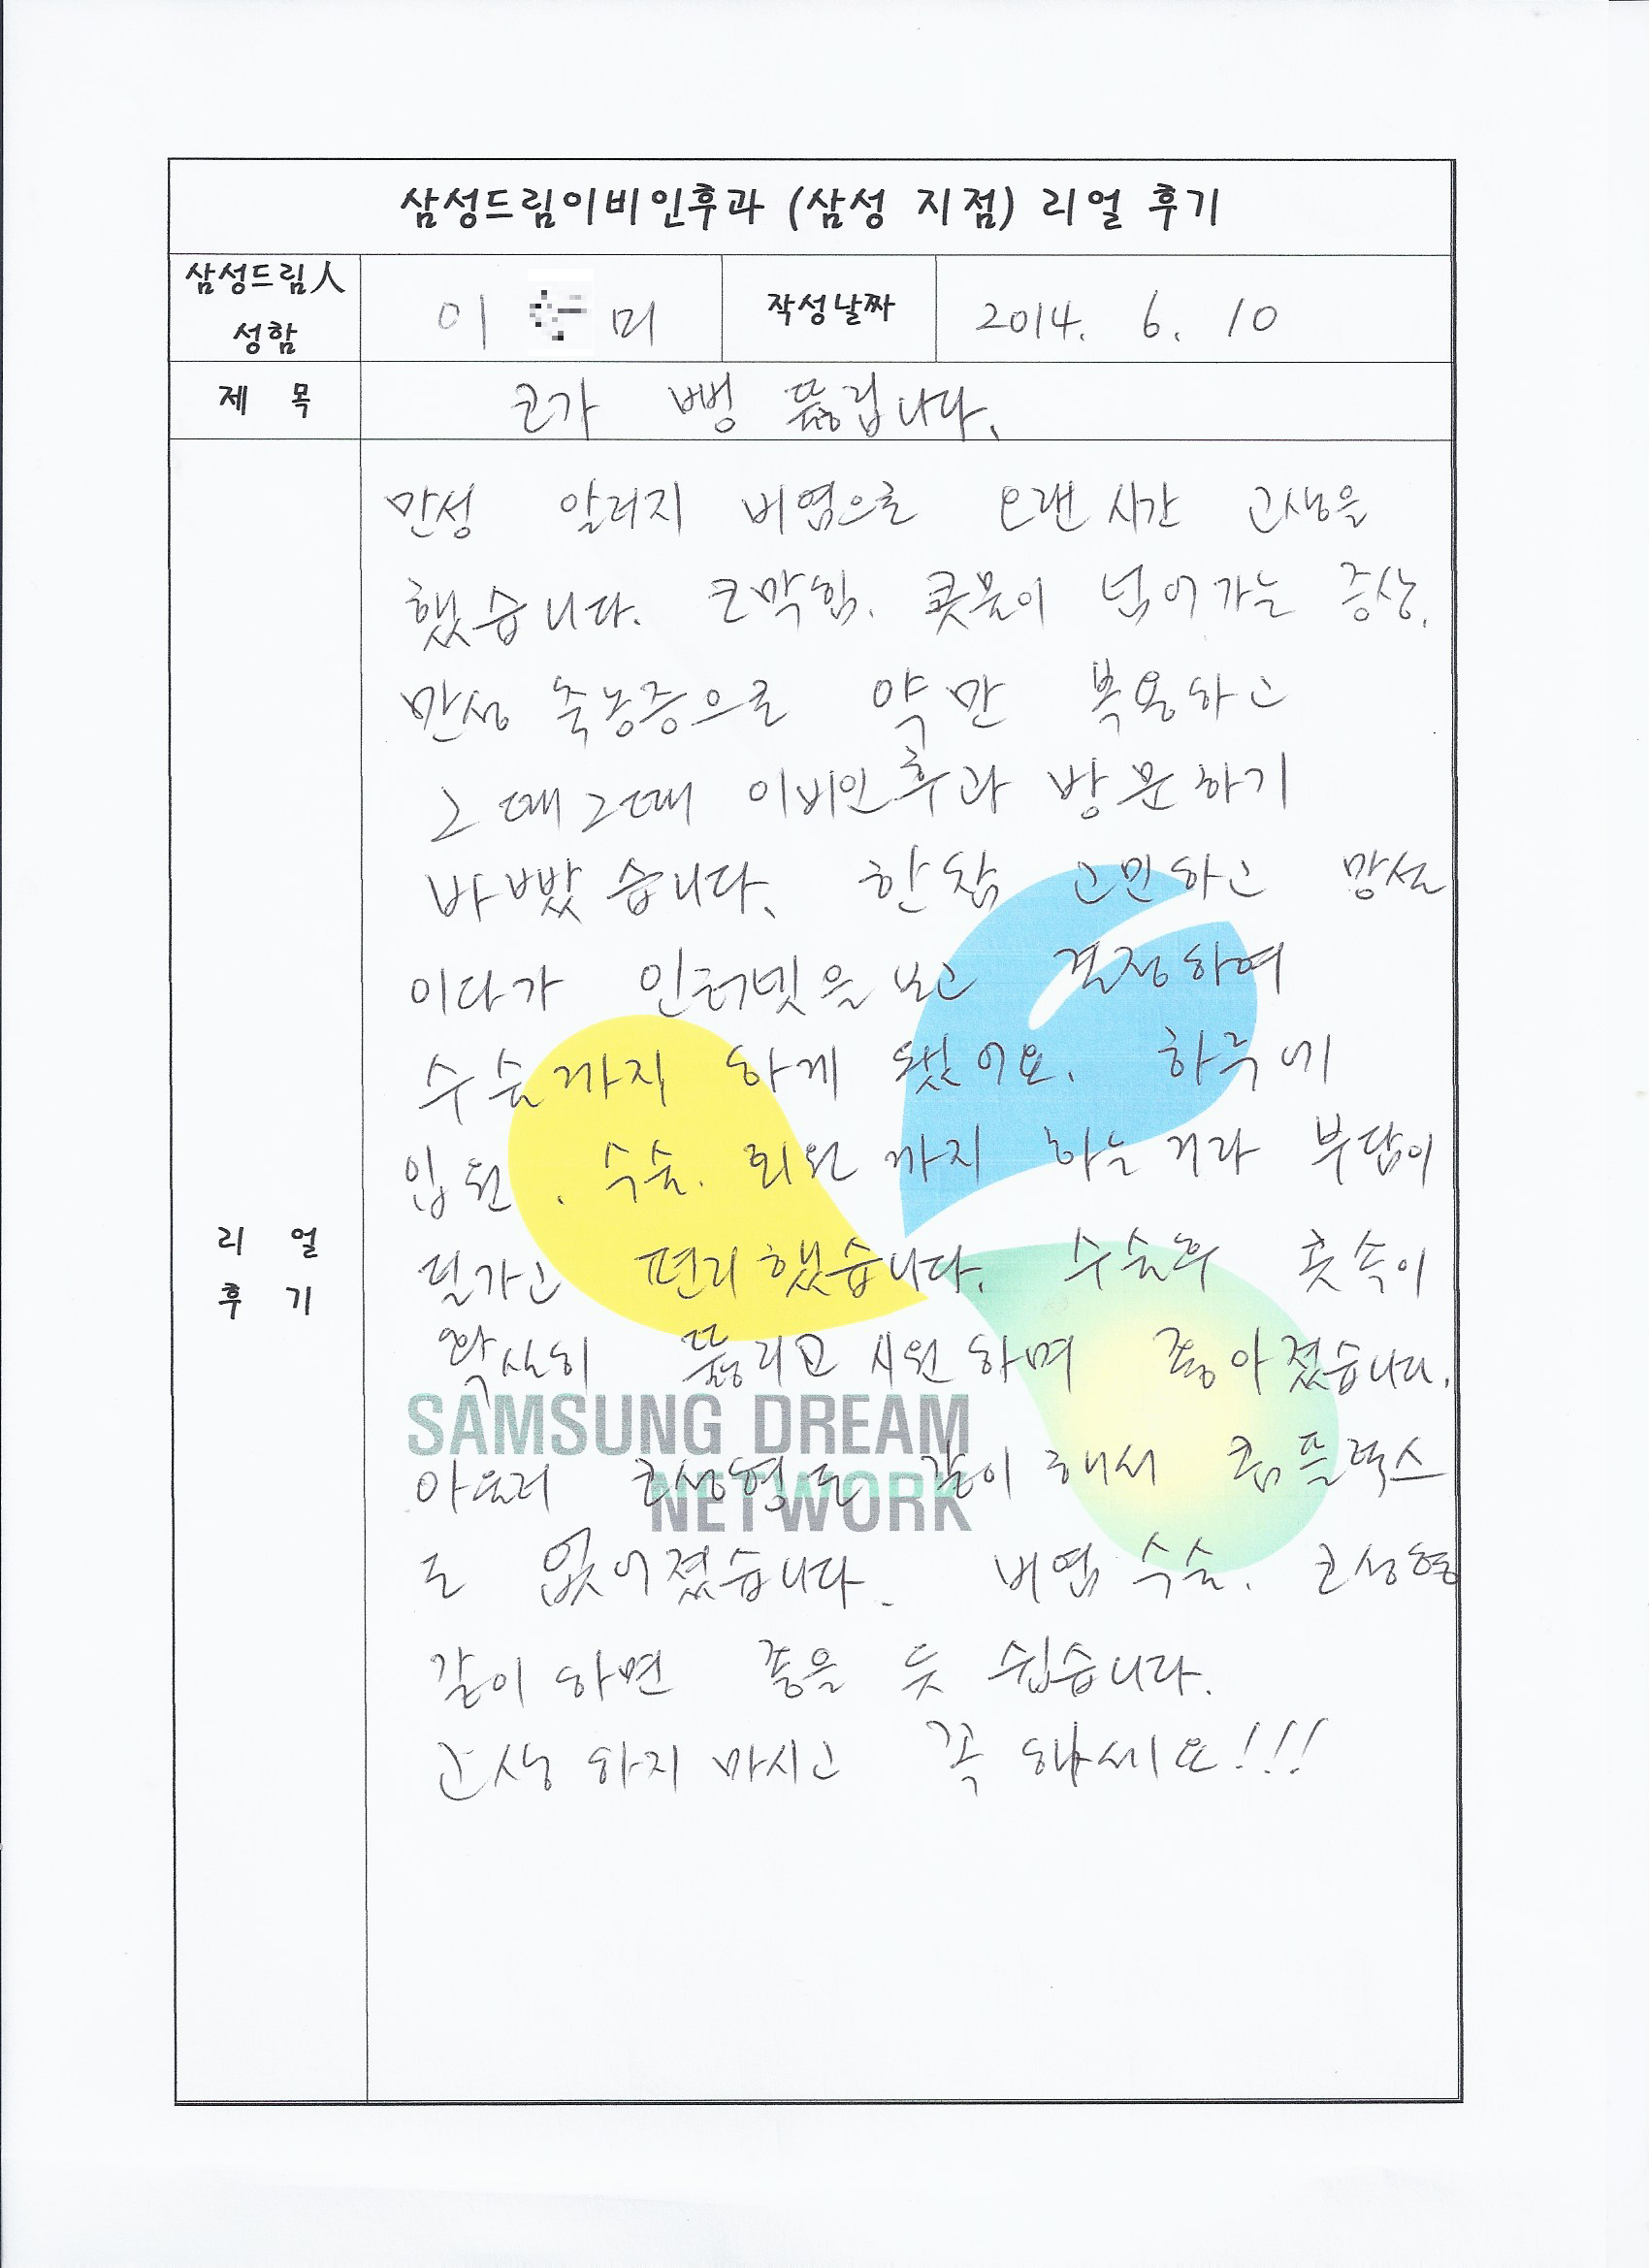 삼성드림이비인후과 (삼성 지점) 리얼 후기
삼성드림人
성함
이 미
작성날짜
2014. 6. 10
제 목
코가 뻥 뚫립니다.
만성 알러지 비염으로 오랜 시간 고생을
했습니다. 코막힘. 콧물이 넘어가는 증상.
만성 축농증으로 약만 복용하고
그때그때 이비인후과 방문하기
바빴습니다. 한참 고민하고 망설
이다가 인터넷을 보고 결정하여
수술까지 하게 됐어요. 하루에
입원. 수술. 퇴원까지 하는거라 부담이
덜가고 편리했습니다. 수술후 콧속이
확실히 뚫리고 시원하며 좋아졌습니다.
SAMSUNG DREAM
아울러 코성형도 같이 해서 콤플렉스
NETWORK
도 없어졌습니다. 비염 수술. 코성형
같이 하면 좋을 듯 쉽습니다.
고생하지 마시고 꼭 하세요!!!
리 얼
후 기